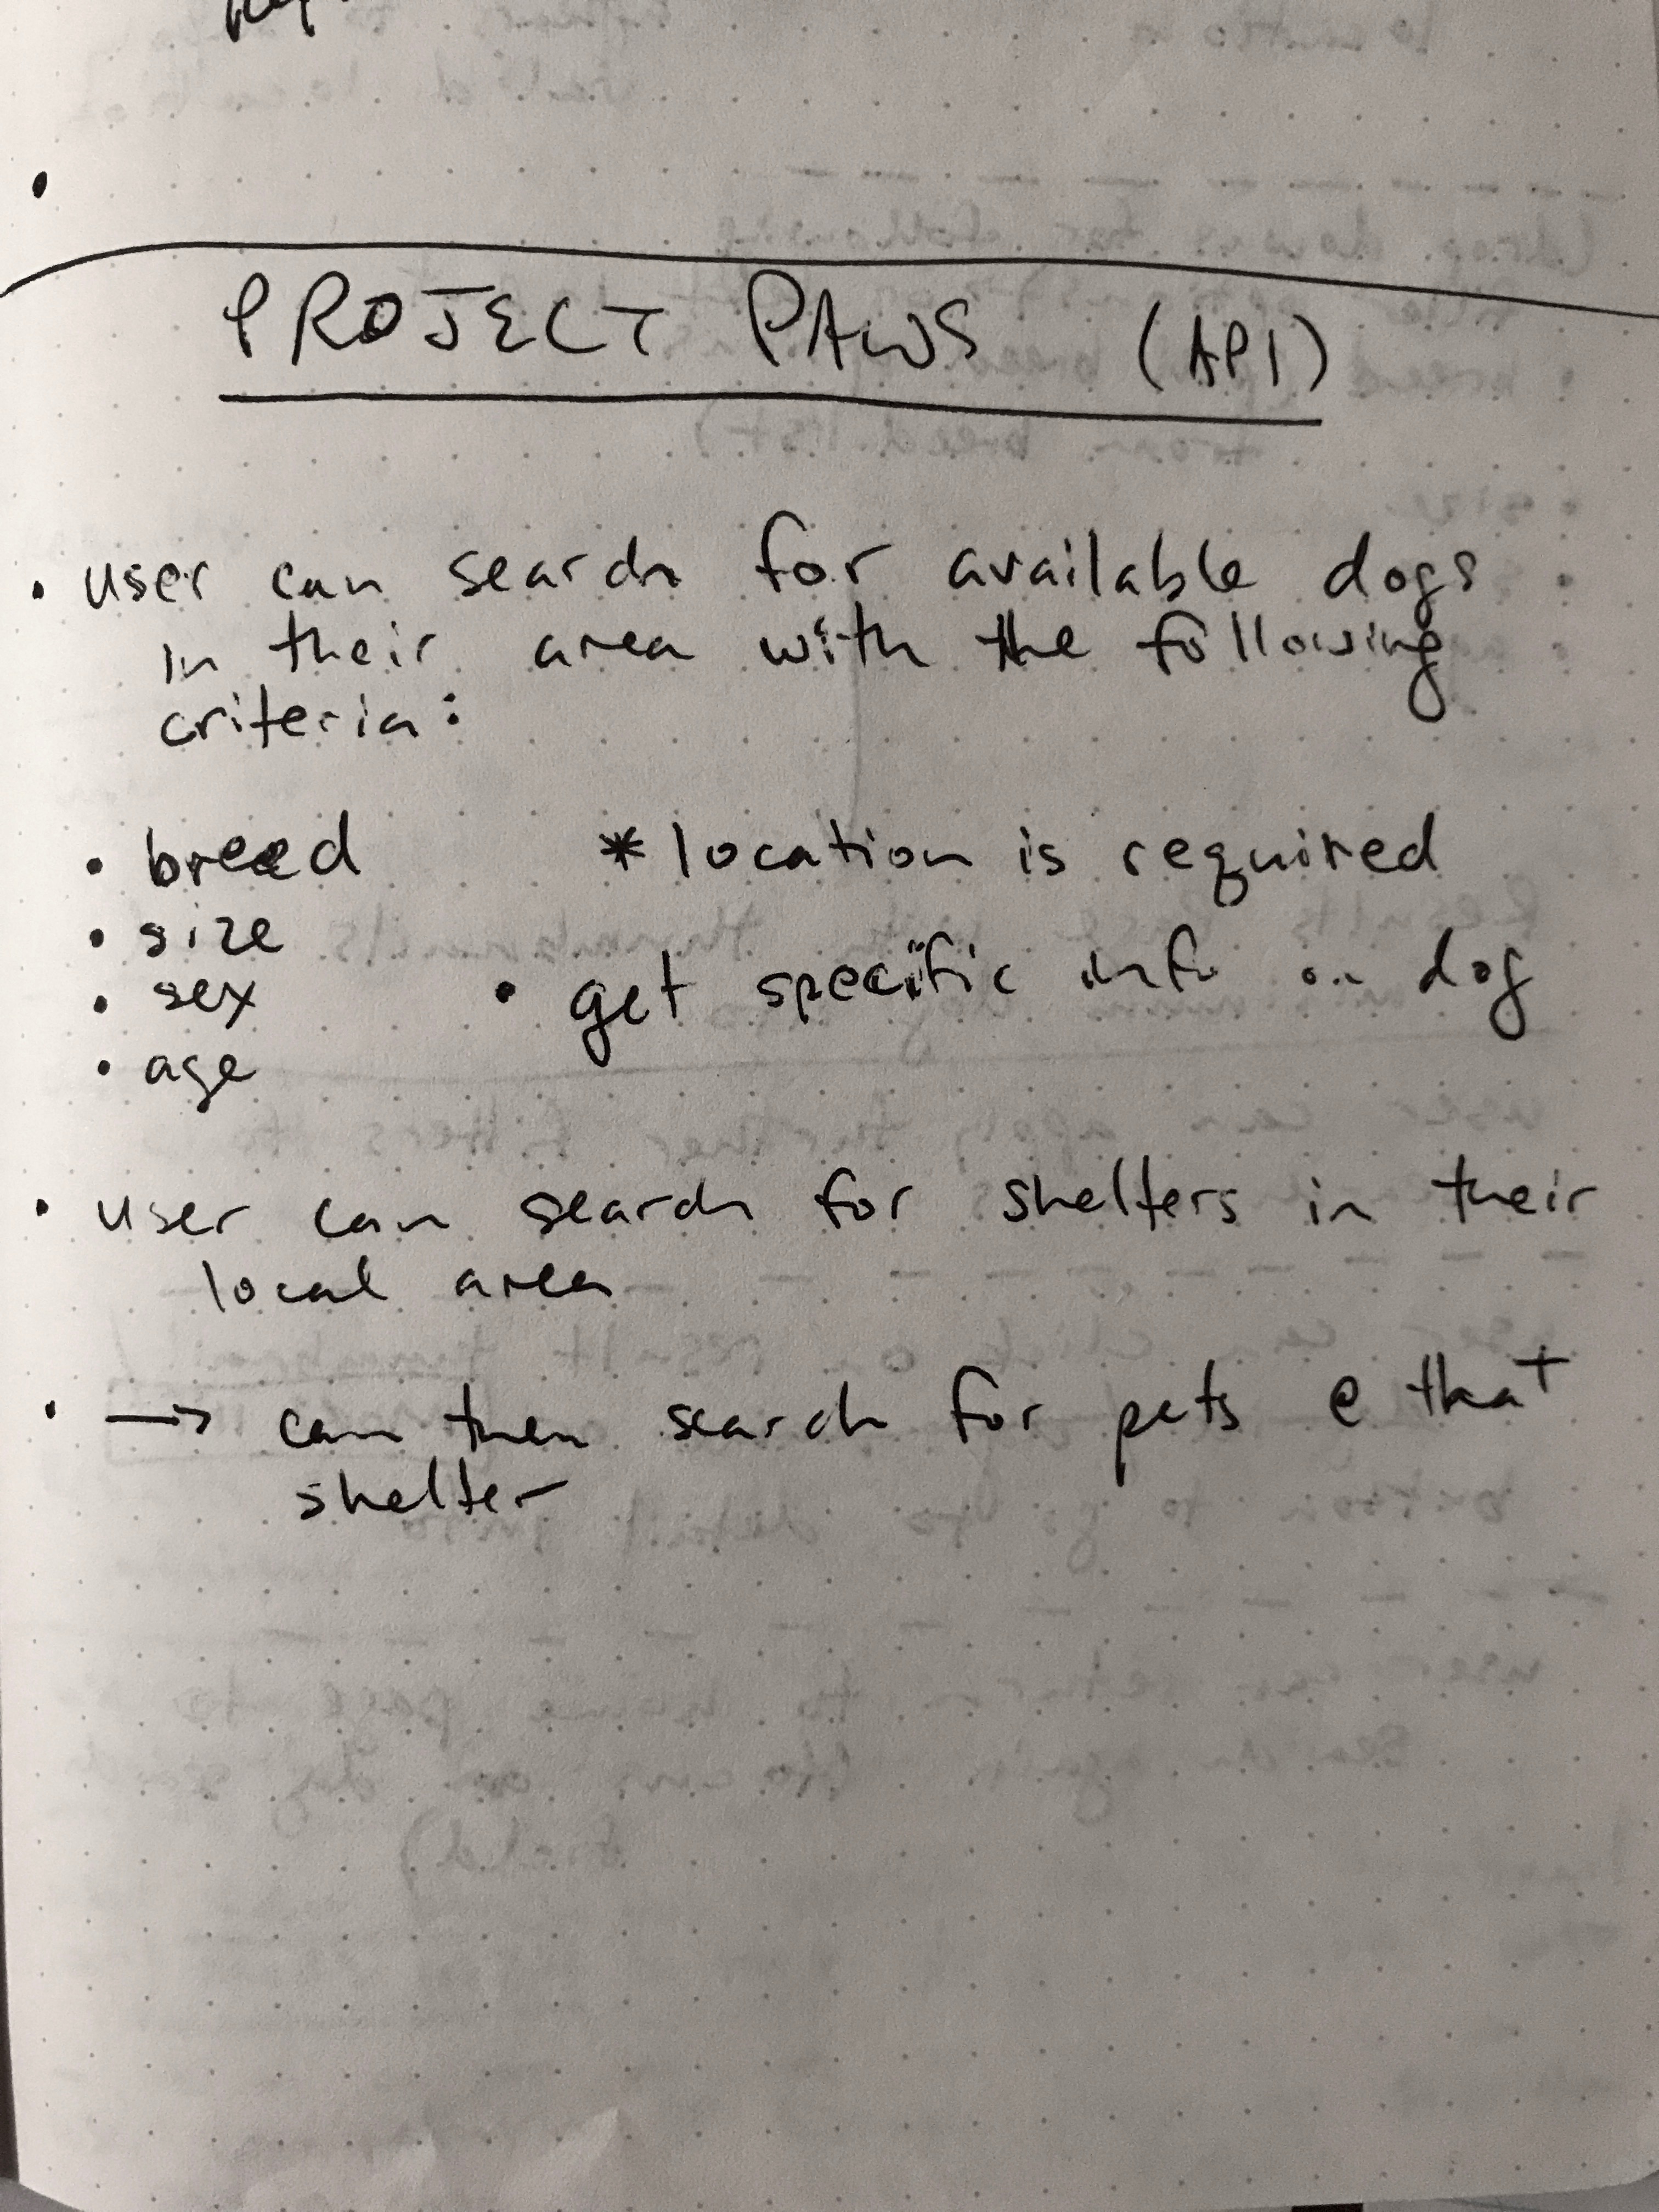 PROJECT PAWS (API)
• user can search for available dogs
in their area with the following
criteria:
• breed
• size
• sex
• age
* location is required
• get specific info on dog
• user can search for shelters in their
local area
• → can then search for pets @ that
shelter